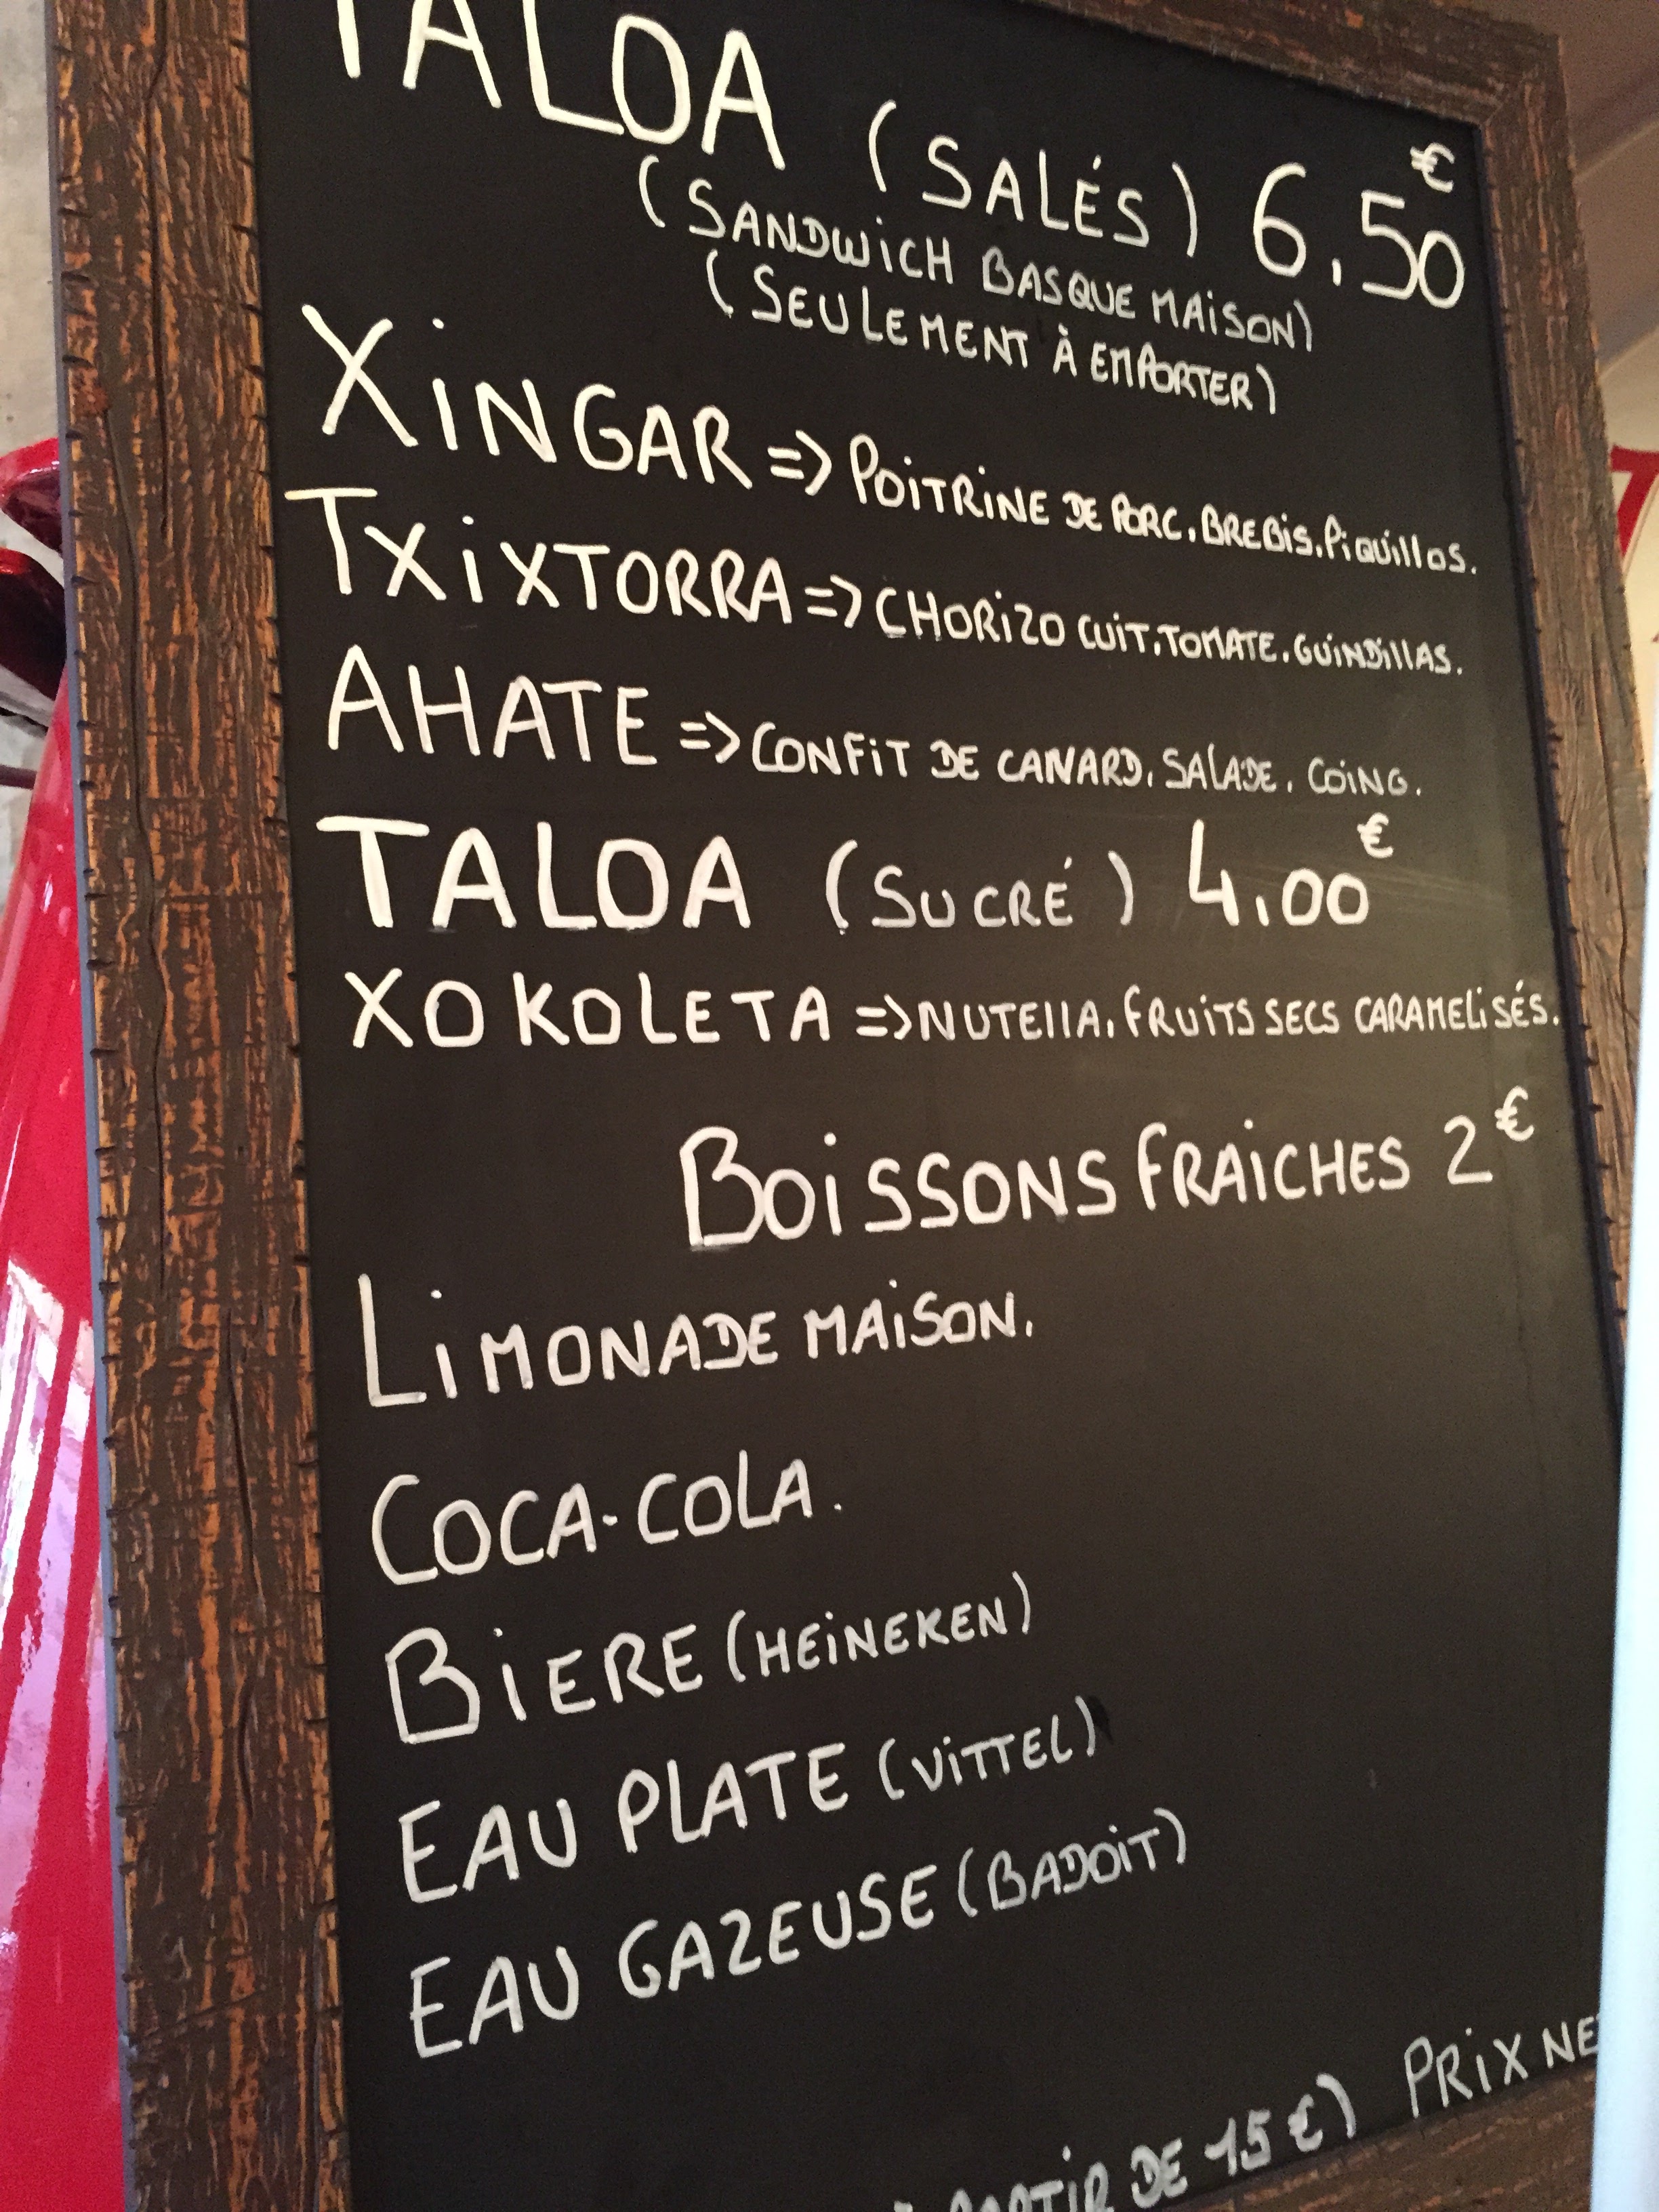 TALOA (SALÉS) 6,50€
(SANDWICH BASQUE MAISON)
(SEULEMENT À EMPORTER)
XINGAR => POITRINE DE PORC. BREBIS. PIQUILLOS.
TXIXTORRA => CHORIZO CUIT. TOMATE. GUINDILLAS.
AHATE => CONFIT DE CANARD. SALADE. COING.
TALOA (SUCRÉ) 4,00€
XOKOLETA => NUTELLA. FRUITS SECS CARAMELISÉS.
BOISSONS FRAICHES 2€
LIMONADE MAISON.
COCA-COLA.
BIERE (HEINEKEN)
EAU PLATE (VITTEL)
EAU GAZEUSE (BADOIT)
PARTIR DE 15€) PRIX NE